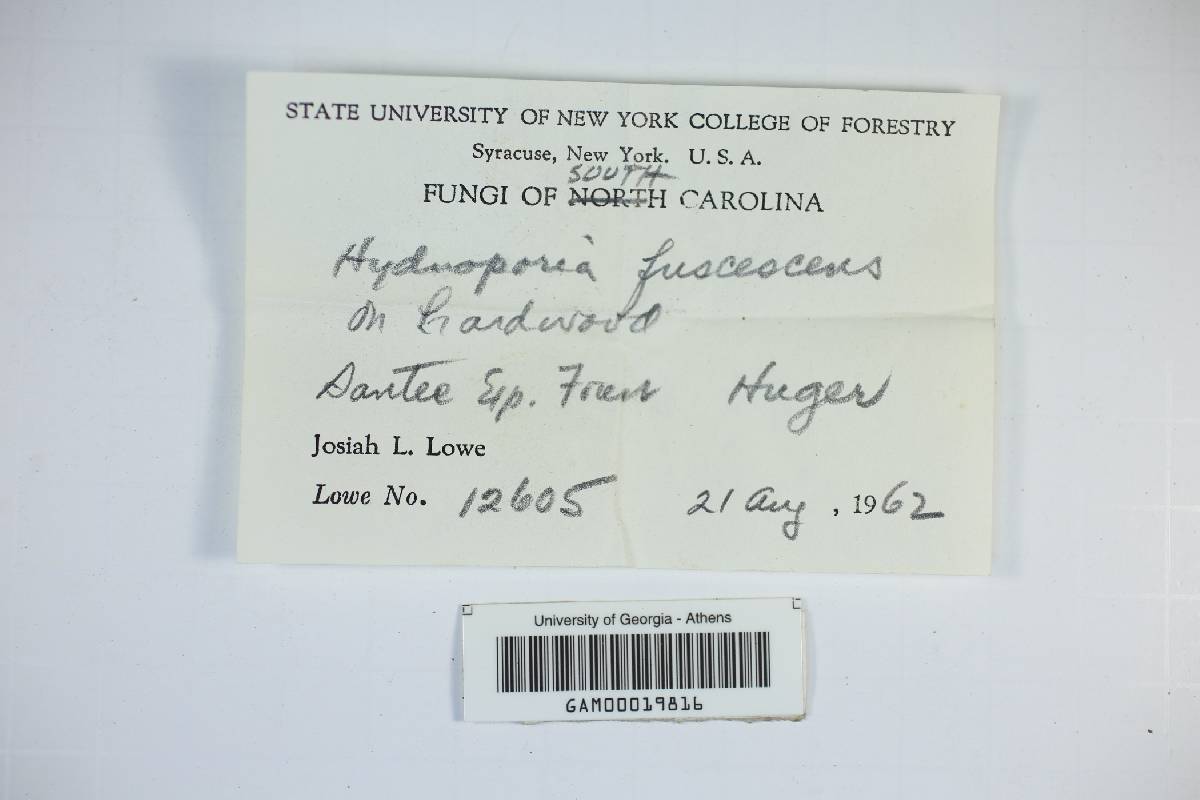 STATE UNIVERSITY OF NEW YORK COLLEGE OF FORESTRY
Syracuse, New York. U. S. A.
SOUTH
FUNGI OF NORTH CAROLINA
Hydnoporia fuscescens
On hardwood
Santee Exp. Forest Huger
Josiah L. Lowe
Lowe No. 12605 21 Aug , 1962
University of Georgia - Athens
GAM00019816